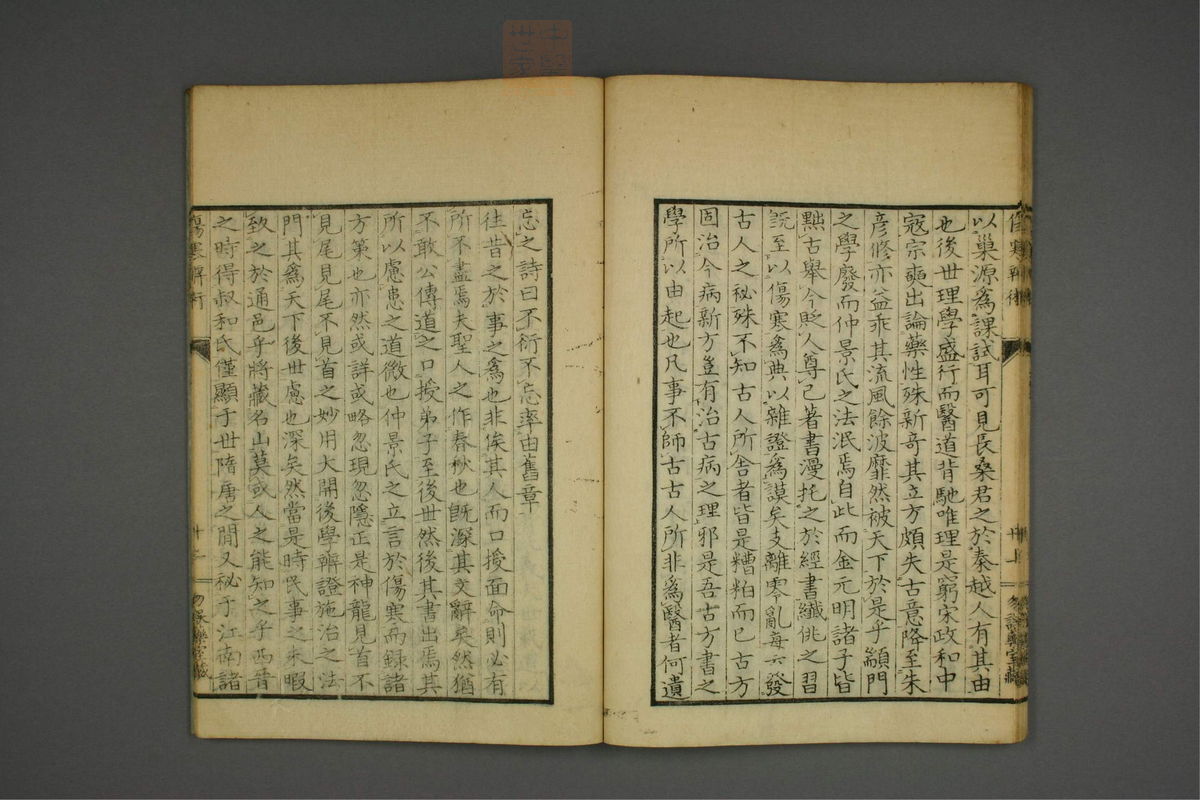 以巢源為課試耳可見長桑君之於秦越人有其由
也後世理學盛行而醫道背馳唯理是窮宋政和中
寇宗奭出論藥性殊新奇其立方頗失古意降至朱
彥修亦益乖其流風餘波靡然被天下於是乎顓門
之學廢而仲景氏之法泯焉自此而金元明諸子皆
點古舉今貶人尊己著書漫托之於經書纖俳之習
說至以傷寒為典以雜證為謨矣支離零亂每六發
古人之秘殊不知古人所舍者皆是糟粕而已古方
固治今病新方豈有治古病之理邪是吾古方書之
學所以由起也凡事不師古古人所非為醫者何遺
忘之詩曰不衍不忘率由舊章
往昔之於事之為也非俟其人而口授面命則必有
所不盡焉夫聖人之作春秋也既深其文辭矣然猶
不敢公傳道之口授弟子至後世然後其書出焉其
所以慮患之道微也仲景氏之立言於傷寒而錄諸
方策也亦然或詳或略忽現忽隱正是神龍見首不
見尾見尾不見首之妙用大開後學辨證施治之法
門其為天下後世慮也深矣然當是時民事之未暇
致之於通邑乎將藏名山莫或人之能知之乎西晉
之時得叔和氏僅顯于世隋唐之間又秘于江南諸
傷寒辨術